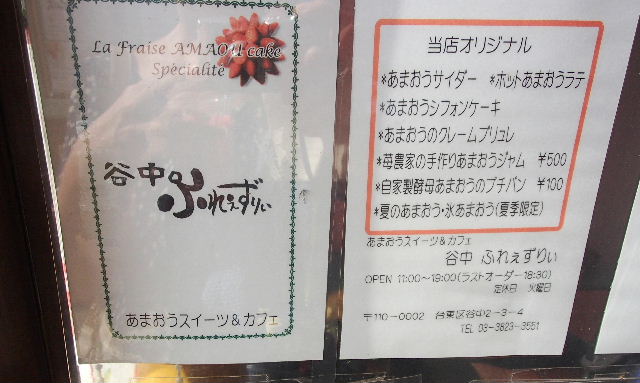 La Fraise AMAOU cake
Spécialité
谷中ふれぇずりぃ
あまおうスイーツ＆カフェ
当店オリジナル
*あまおうサイダー *ホットあまおうラテ
*あまおうシフォンケーキ
*あまおうのクレームブリュレ
*苺農家の手作りあまおうジャム ￥500
*自家製酵母あまおうのプチパン ￥100
*夏のあまおう・氷あまおう(夏季限定)
あまおうスイーツ＆カフェ
谷中 ふれぇずりぃ
OPEN 11:00～19:00(ラストオーダー18:30)
定休日 火曜日
〒110-0002 台東区谷中2-3-4
TEL 03-3823-3551